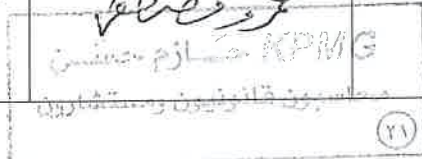 KPMG حازم حسن
محاسبون قانونيون ومستشارون
٢١